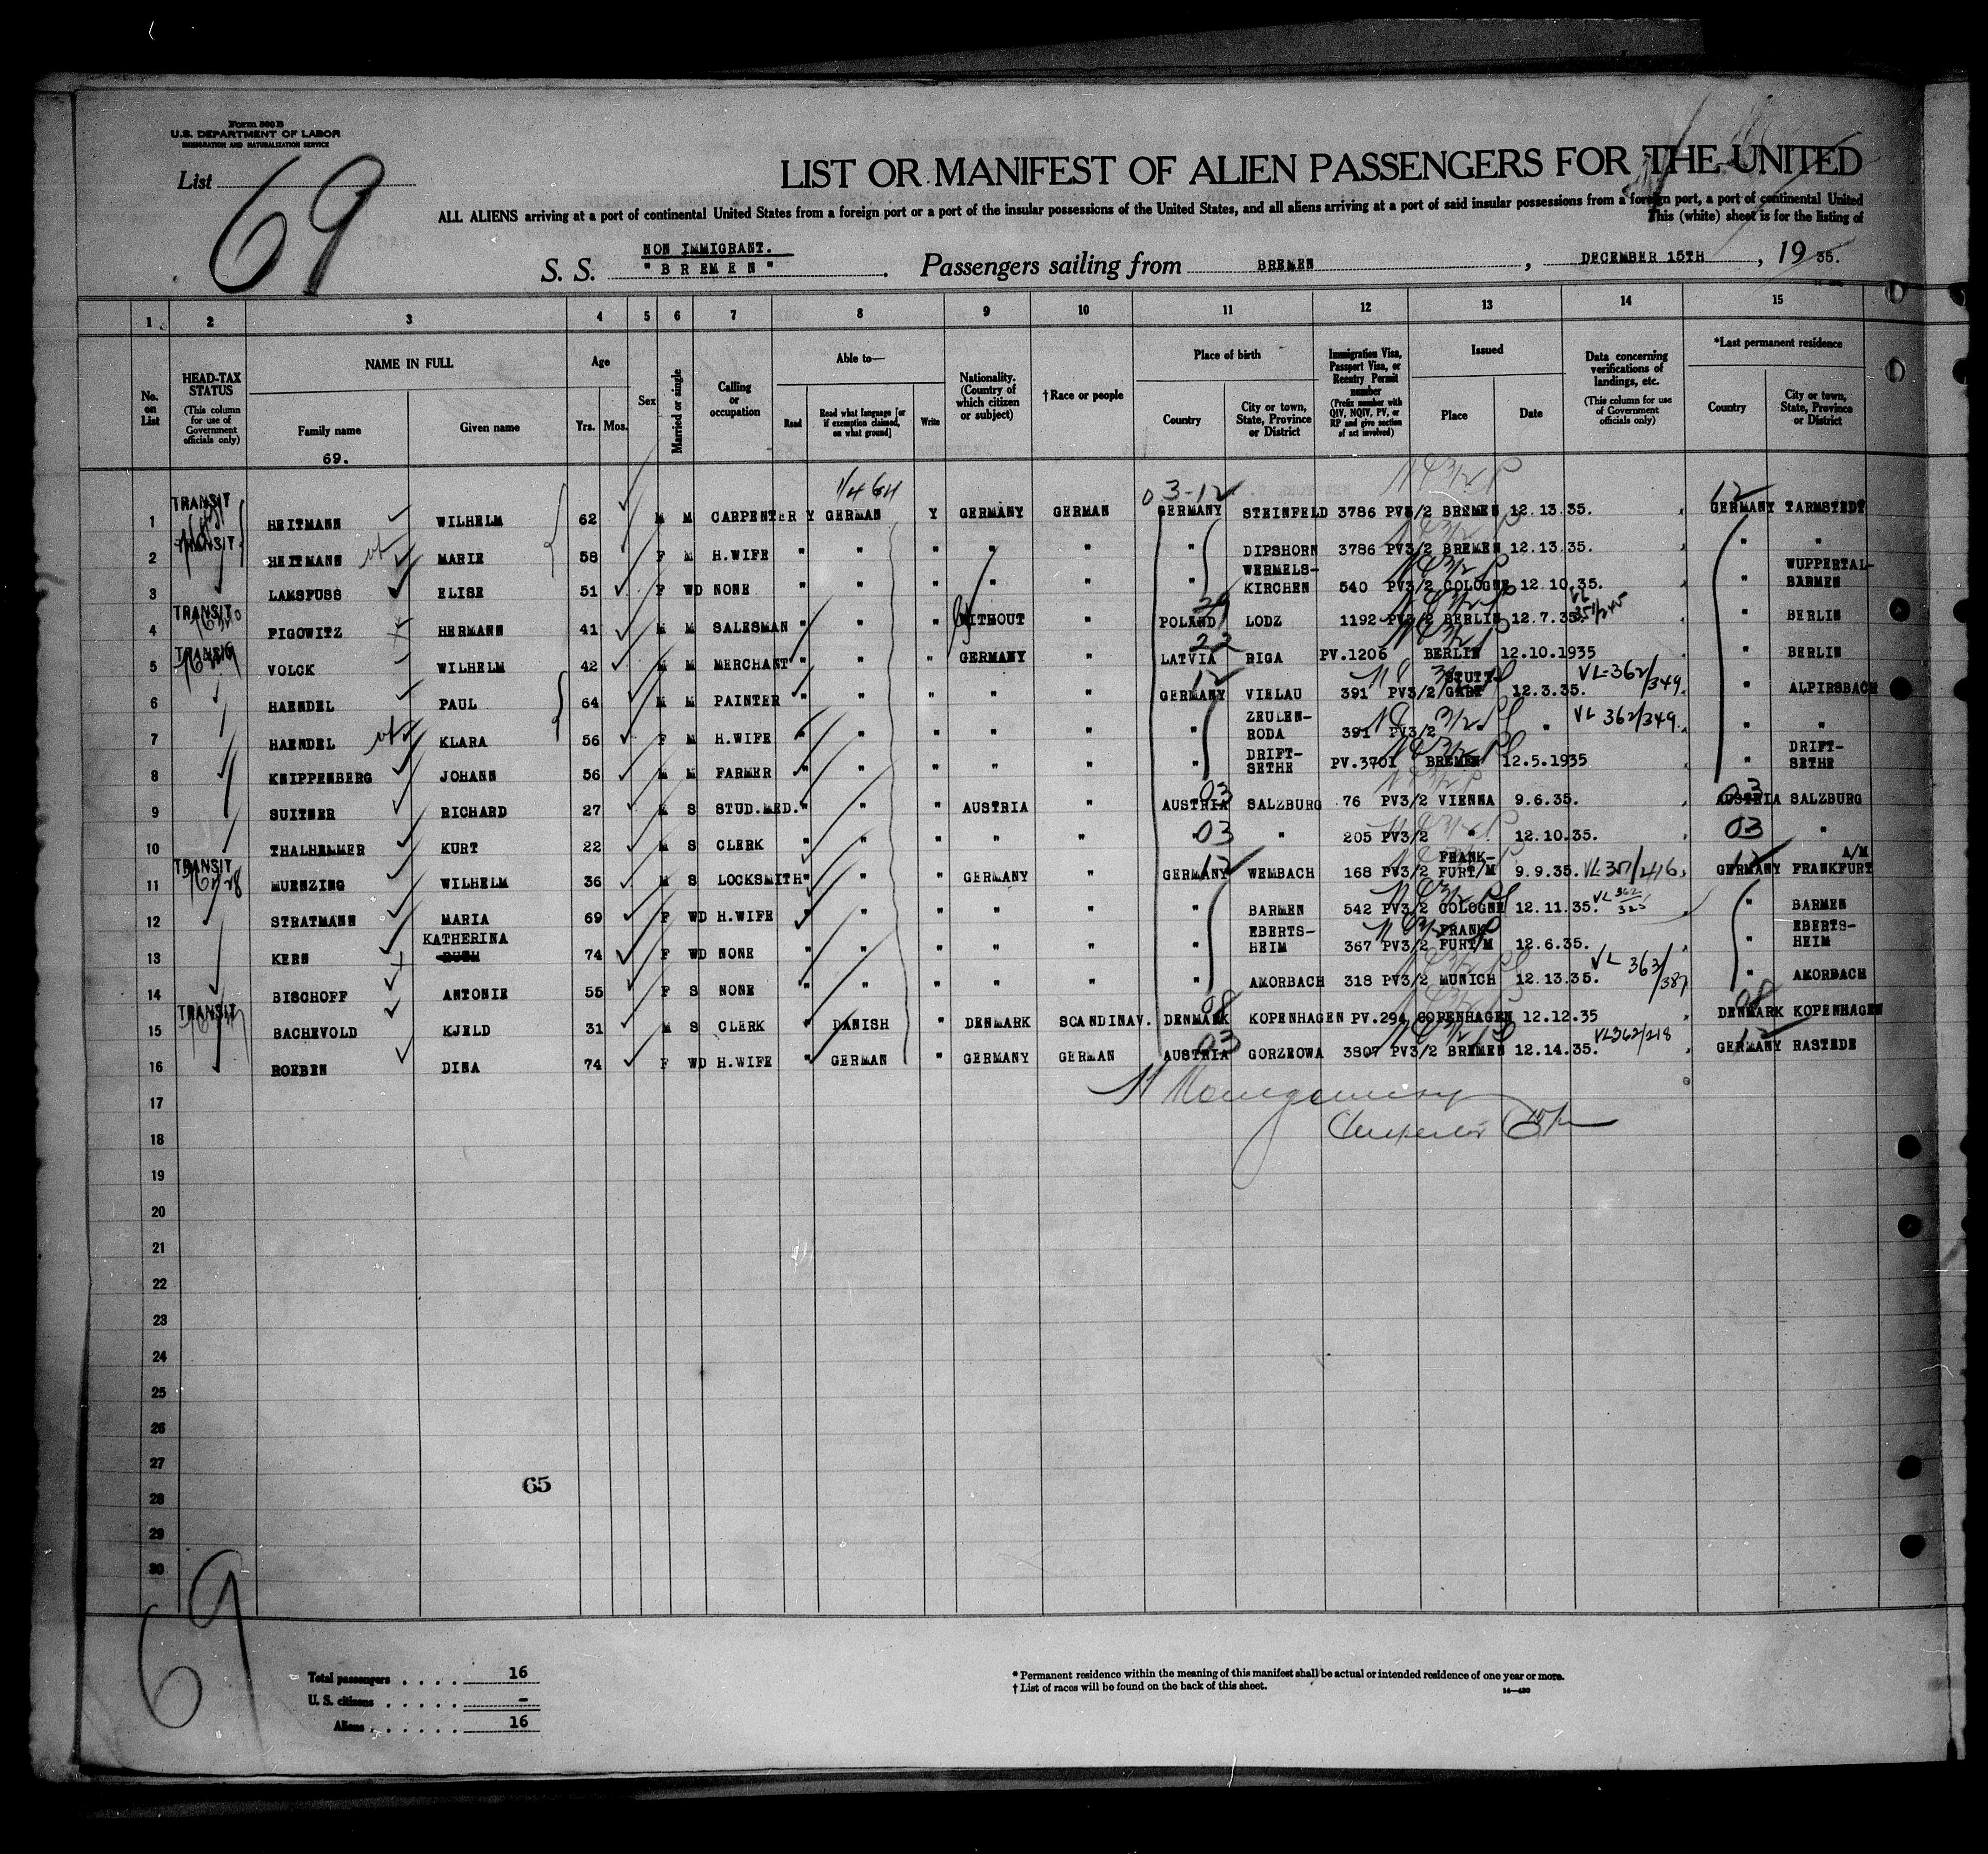 Form 500 B
U.S. DEPARTMENT OF LABOR
IMMIGRATION AND NATURALIZATION SERVICE
List 69
LIST OR MANIFEST OF ALIEN PASSENGERS FOR THE UNITED
ALL ALIENS arriving at a port of continental United States from a foreign port or a port of the insular possessions of the United States, and all aliens arriving at a port of said insular possessions from a foreign port, a port of continental United
This (white) sheet is for the listing of
NON IMMIGRANT.
S. S. "BREMEN". Passengers sailing from BREMEN, DECEMBER 15TH, 19 35.
1 2 3 4 5 6 7 8 9 10 11 12 13 14 15
No. on List
HEAD-TAX STATUS (This column for use of Government officials only)
NAME IN FULL Family name Given name
Age Yrs. Mos.
Sex
Married or single
Calling or occupation
Able to— Read Read what language [or if exemption claimed, on what ground] Write
Nationality. (Country of which citizen or subject)
†Race or people
Place of birth Country City or town, State, Province or District
Immigration Visa, Passport Visa, or Reentry Permit number (Prefix number with QIV, NQIV, PV, or RP and give section of act involved)
Issued Place Date
Data concerning verifications of landings, etc. (This column for use of Government officials only)
*Last permanent residence Country City or town, State, Province or District
69.
03-12 12
1 TRANSIT HEITMANN WILHELM 62 M M CARPENTER Y GERMAN Y GERMANY GERMAN GERMANY STEINFELD 3786 PV3/2 BREMEN 12.13.35. GERMANY TARMSTEDT
2 TRANSIT HEITMANN MARIE 58 F M H.WIFE " " " " " " DIPSHORN 3786 PV3/2 BREMEN 12.13.35. " "
3 LAMSFUSS ELISE 51 F WD NONE " " " " " " WERMELS-KIRCHEN 540 PV3/2 COLOGNE 12.10.35. " WUPPERTAL-BARMEN
4 TRANSIT PIGOWITZ HERMANN 41 M M SALESMAN " " " WITHOUT " POLAND LODZ 1192 PV3/2 BERLIN 12.7.35. " BERLIN
5 TRANSIT VOLCK WILHELM 42 M M MERCHANT " " " GERMANY " 22 LATVIA RIGA PV.1206 BERLIN 12.10.1935 " BERLIN
6 HAENDEL PAUL 64 M M PAINTER " " " " " 12 GERMANY VIELAU 391 PV3/2 STUTT-GART 12.3.35. VL-362/349 " ALPIRSBACH
7 HAENDEL KLARA 56 F M H.WIFE " " " " " " ZEULEN-RODA 391 PV3/2 " " VL 362/349 " "
8 KNIPPENBERG JOHANN 56 M M FARMER " " " " " " DRIFT-SETHE PV.3701 BREMEN 12.5.1935 " DRIFT-SETHE
9 SUITNER RICHARD 27 M S STUD.MED. " " " AUSTRIA " 03 AUSTRIA SALZBURG 76 PV3/2 VIENNA 9.6.35. 03 AUSTRIA SALZBURG
10 THALHAMMER KURT 22 M S CLERK " " " " " 03 " " 205 PV3/2 " 12.10.35. 03 "
11 TRANSIT MUENZING WILHELM 36 M S LOCKSMITH " " " GERMANY " 12 GERMANY WEMBACH 168 PV3/2 FRANK-FURT/M 9.9.35. 12 GERMANY FRANKFURT A/M
12 STRATMANN MARIA 69 F WD H.WIFE " " " " " " BARMEN 542 PV3/2 COLOGNE 12.11.35. " BARMEN
13 KERN KATHERINA RUTH 74 F WD NONE " " " " " " EBERTS-HEIM 367 PV3/2 FRANK-FURT/M 12.6.35. " EBERTS-HEIM
14 BISCHOFF ANTONIE 55 F S NONE " " " " " " AMORBACH 318 PV3/2 MUNICH 12.13.35. VL 363/387 " AMORBACH
15 TRANSIT BACHEVOLD KJELD 31 M S CLERK " DANISH " DENMARK SCANDINAV. 08 DENMARK KOPENHAGEN PV.294 COPENHAGEN 12.12.35 08 DENMARK KOPENHAGEN
16 ROEBEN DINA 74 F WD H.WIFE " GERMAN " GERMANY GERMAN 03 AUSTRIA GORZEOWA 3807 PV3/2 BREMEN 12.14.35. VL362/218 12 GERMANY RASTEDE
17
18
19
20
21
22
23
24
25
26
27
28
29
30
65
69
Total passengers . . . . 16
U. S. citizens . . . . . -
Aliens . . . . . . 16
* Permanent residence within the meaning of this manifest shall be actual or intended residence of one year or more.
† List of races will be found on the back of this sheet.
14—430